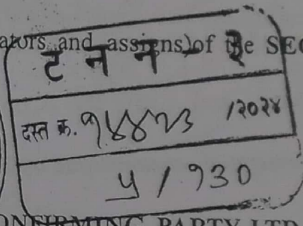 ators and assigns) of the SEC
ट न न २
दस्त क्र. /२०२४
५ / १३०
ONFIRMING PARTY LTD